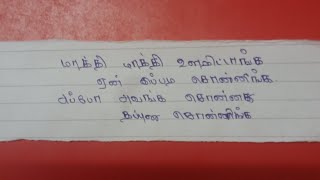 மாத்தி மாத்தி உளவிட்டாங்க
ஏன் எப்பும சொன்னிங்க
எப்போ அவங்க சொன்னத
தப்பு சொன்னிங்க